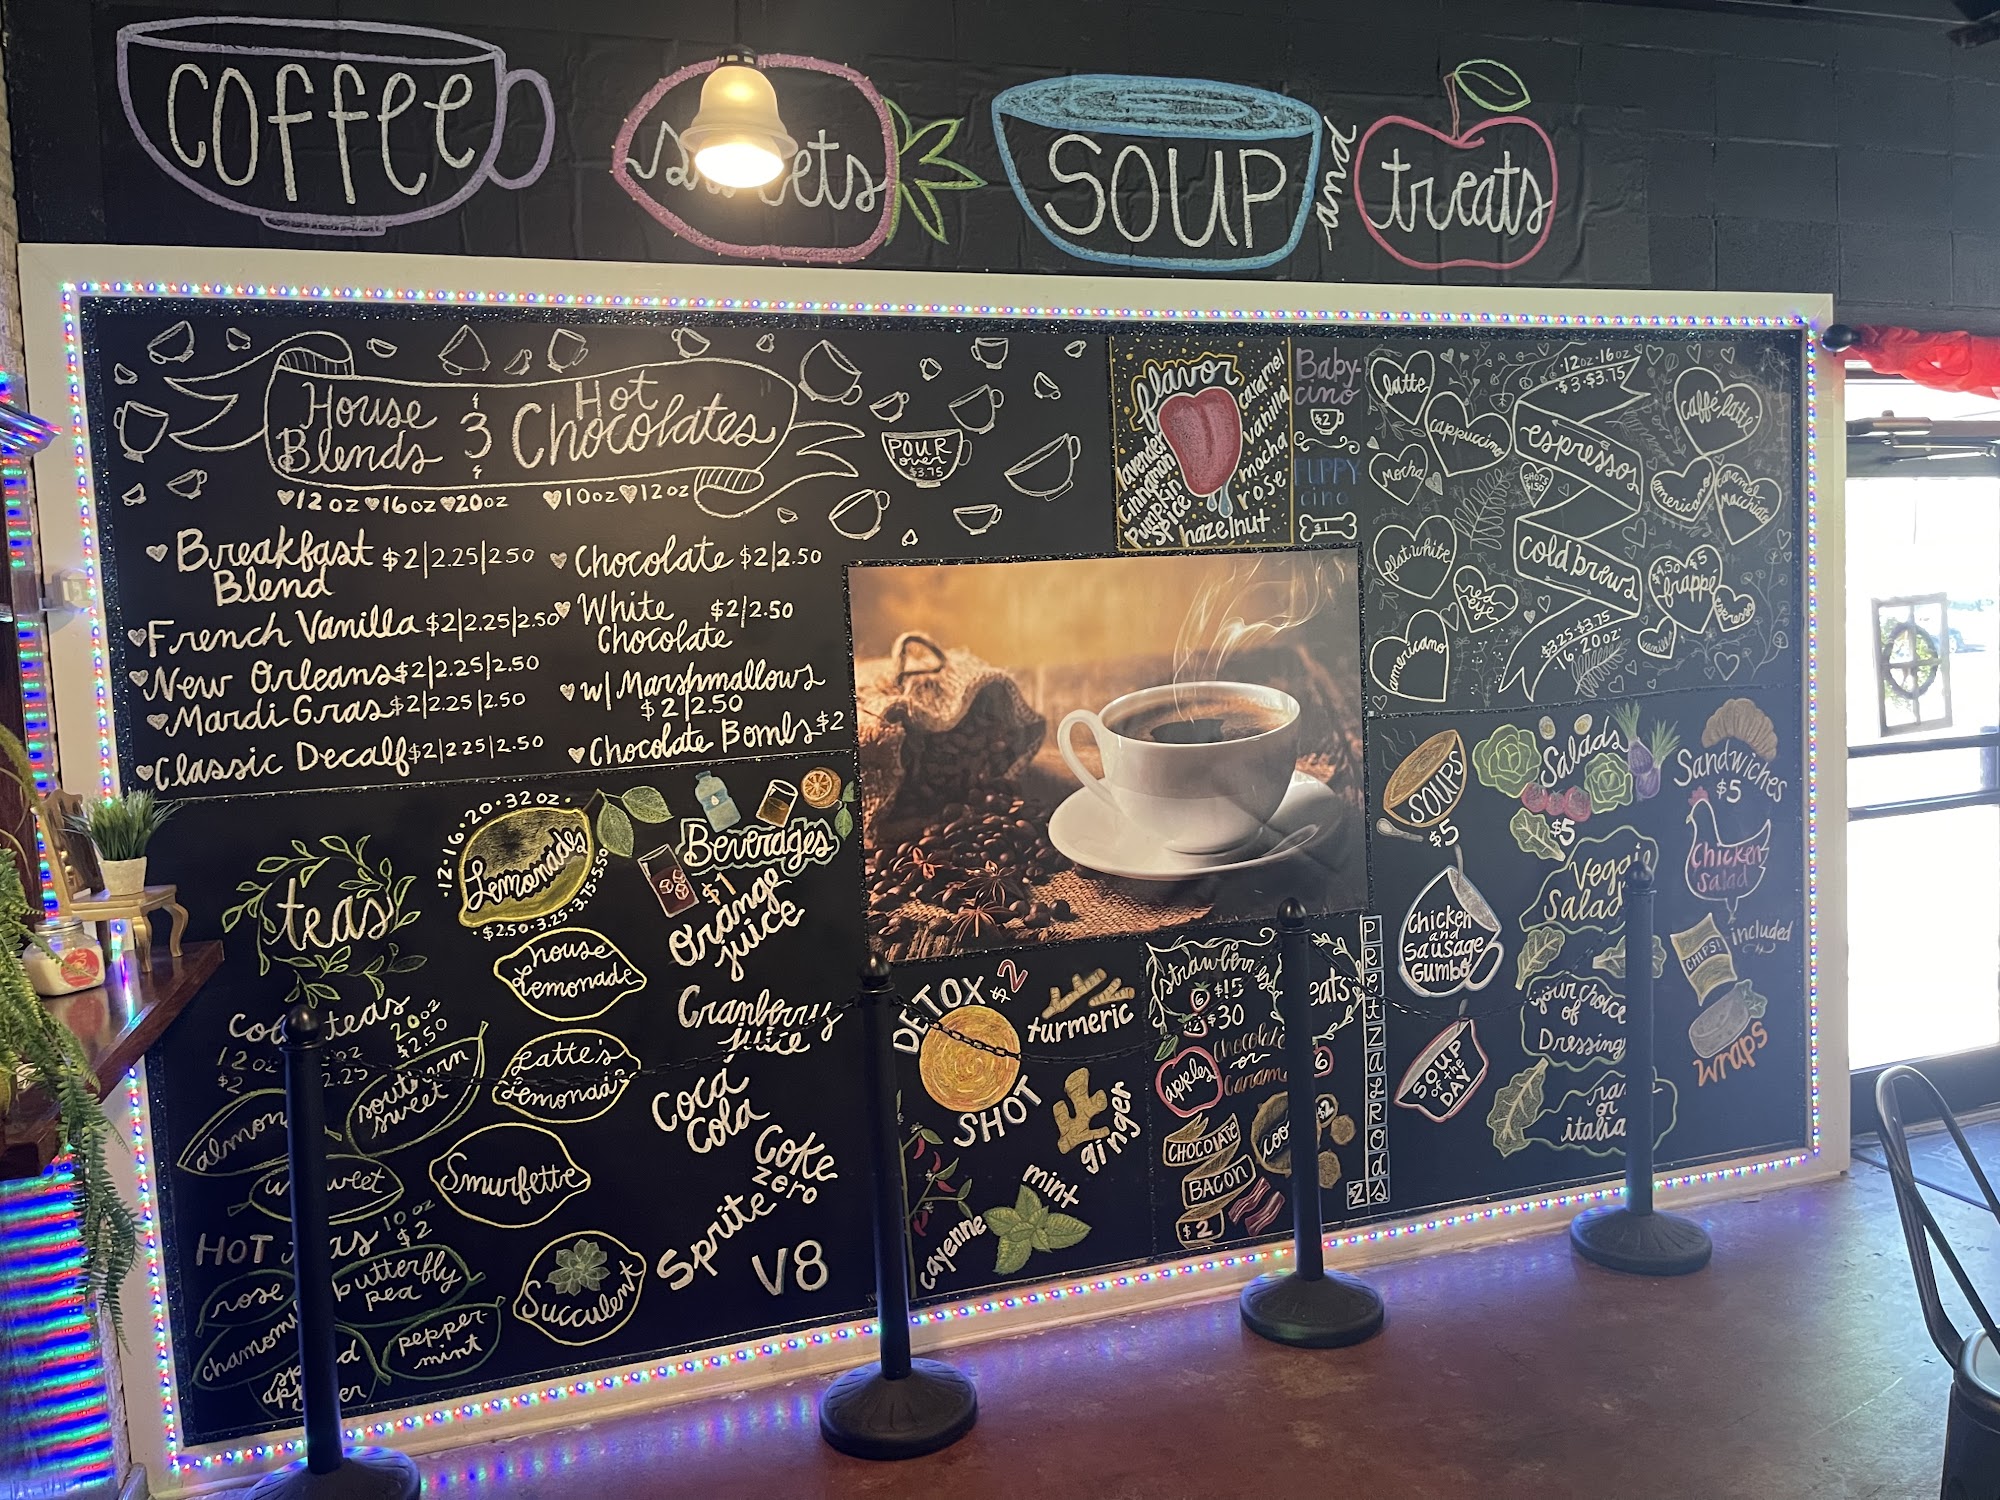 coffee
SOUP
and
treats
House
Blends
&
Hot
Chocolates
12 oz 16 oz 20 oz
10 oz 12 oz
POUR
over
$3.75
Breakfast
Blend $2|2.25|2.50
French Vanilla $2|2.25|2.50
New Orleans $2|2.25|2.50
Mardi Gras $2|2.25|2.50
Classic Decaf $2|2.25|2.50
Chocolate $2|2.50
White
Chocolate $2|2.50
w/ Marshmallows
$2|2.50
Chocolate Bombs $2
flavor
caramel
vanilla
mocha
rose
hazelnut
lavender
cinnamon
pumpkin
spice
Baby-
cino
$2
PUPPY
cino
$1
12oz 16oz
$3 $3.75
espressos
SHOTS
$1.50
cold brews
$3.25 $3.75
16 20oz
latte
cappuccino
mocha
flat white
red
eye
americano
caffé latte
americano
caramel
macchiato
$4.50 $5
frappé
vanilla
teas
cold teas
12 oz
$2
2.25
20oz
$2.50
southern
sweet
HOT
10 oz
$2
rose
butterfly
pea
pepper-
mint
12·16·20·32 oz·
Lemonades
$2.50·3.25·3.75·5.50
house
Lemonade
Latte's
Lemonade
Smurfette
Succulent
Beverages
$1
Orange
juice
Cranberry
juice
Coca
Cola
Coke
zero
Sprite
V8
DETOX $2
SHOT
turmeric
ginger
mint
cayenne
strawberries
6 $15
12 $30
apples
Chocolate
or
CHOCOLATE
BACON
$2
$2
PRETZEL RODS
$2
SOUPS
$5
Chicken
and
Sausage
Gumbo
SOUP
of the
DAY
Salads
$5
Veggie
Salad
your choice
of
Dressing
or
Sandwiches
$5
Chicken
Salad
CHIPS!
included
wraps